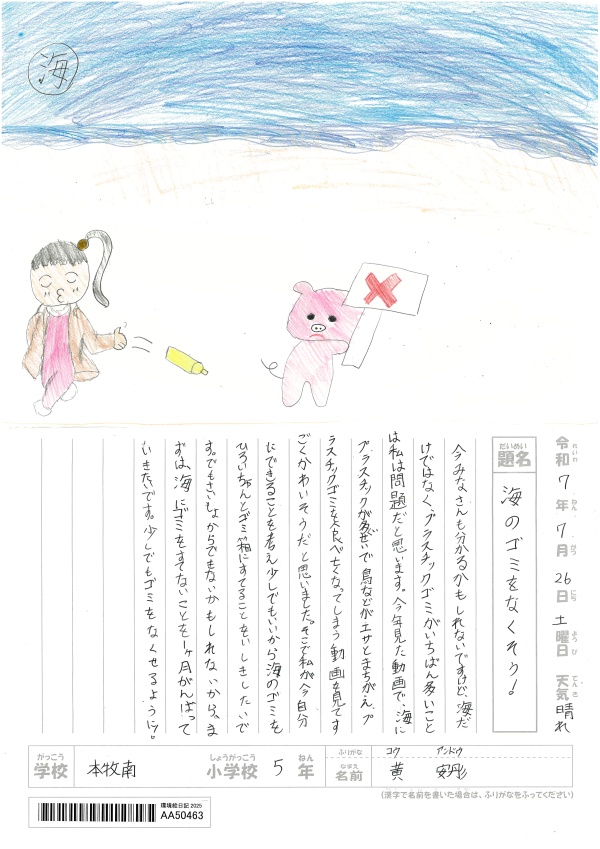 海
令和7年7月26日土曜日 天気晴れ
れいわ ねん がつ にち ようび てんき
だいめい
題名
海のゴミをなくそう!
今みなさんも分かるかもしれないですけど、海だ
けではなく、プラスチックゴミがいちばん多いこと
は私は問題だと思います。今年見た動画で、海に
プラスチックが多ぜいで鳥などがエサとまちがえ、プ
ラスチックゴミを食べてなくなってしまう動画を見てす
ごくかわいそうだと思いました。そこで私が今自分
にできることを考え少しでもいいから海のゴミを
ひろいちゃんとゴミ箱にすてることをいしきしたいで
す。でもさいしょからできないかもしれないから、ま
ずは、海にゴミをすてないことを1ヶ月がんばって
いきたいです。少しでもゴミをなくせるように。
がっこう
学校
本牧南
しょうがっこう
小学校
5
ねん
年
ふりがな
コウ アンドウ
なまえ
名前
黄
(漢字で名前を書いた場合は、ふりがなをふってください)
環境絵日記 2025
AA50463